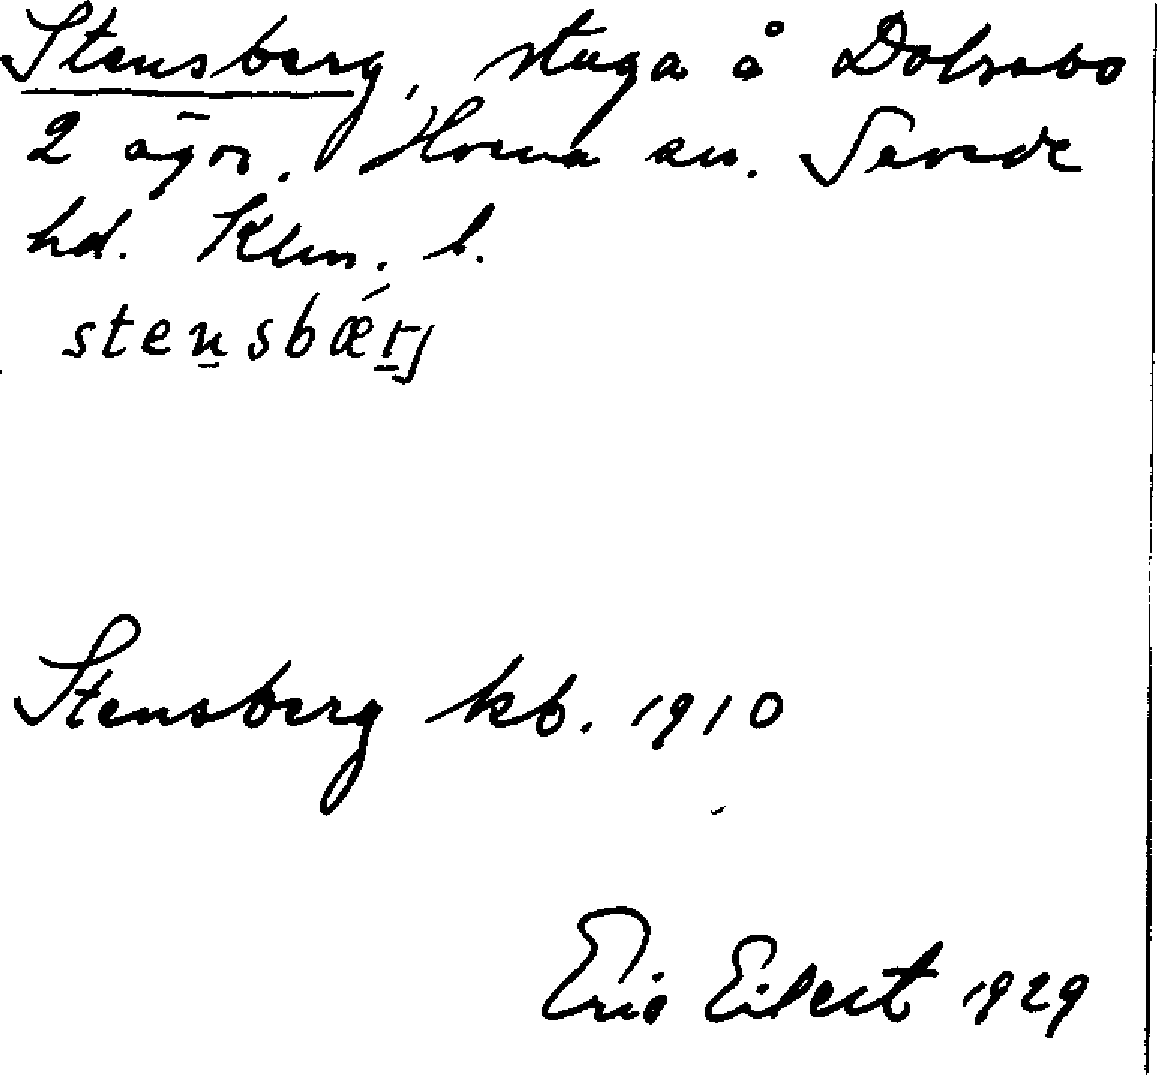 Stensberg, stuga å
2 ägor. Hvena sn. Sevede
hd. Klm. l.
sten̲sbǽr̲j
Stensberg kb. 1910
Eric Eilert 1929